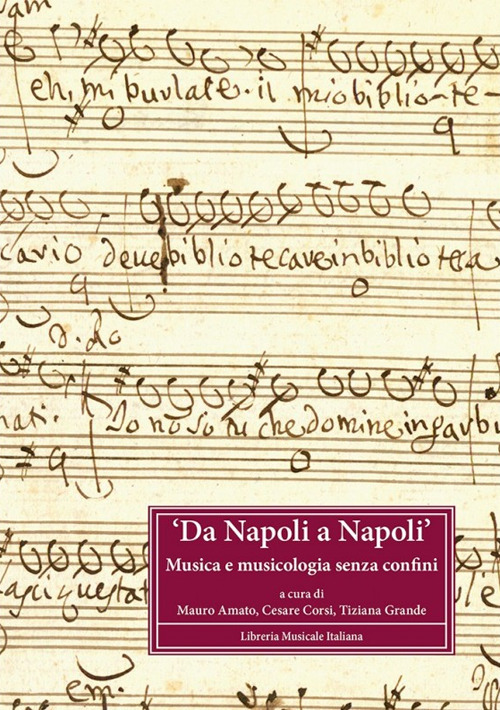 eh, mi burlate. il mio biblio-te-
cario deve bibliotecare in biblioteca
v. do
nati. Io no so tu che domine in garbu
‘Da Napoli a Napoli’
Musica e musicologia senza confini
a cura di
Mauro Amato, Cesare Corsi, Tiziana Grande
Libreria Musicale Italiana
em.